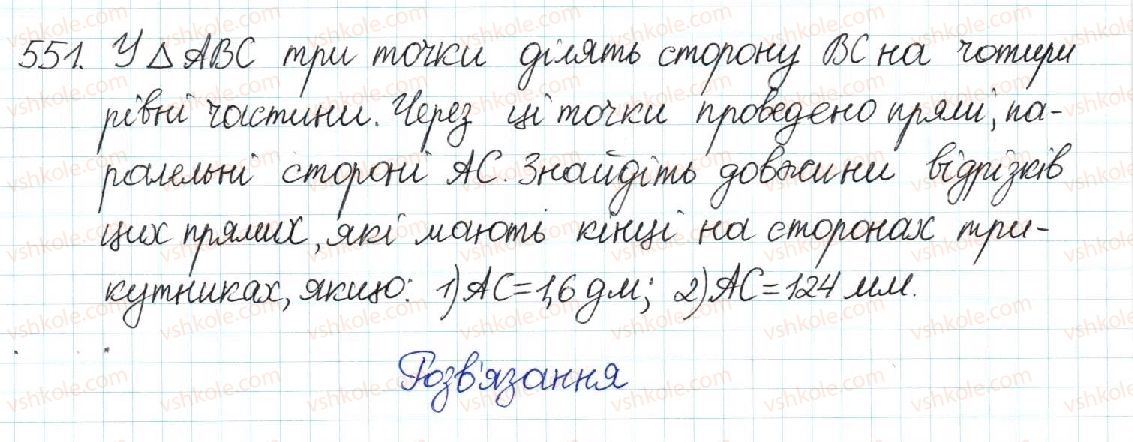 551. У △ ABC три точки ділять сторону BC на чотири
рівні частини. Через ці точки проведено прямі, па-
ралельні стороні AC. Знайдіть довжини відрізків
цих прямих, які мають кінці на сторонах три-
кутниках, якщо: 1) AC = 1,6 дм; 2) AC = 124 мм.
Розв'язання